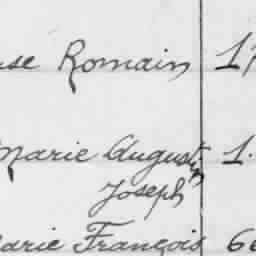 use Romain 17
Marie Augustin 1.
Joseph
Marie François 66